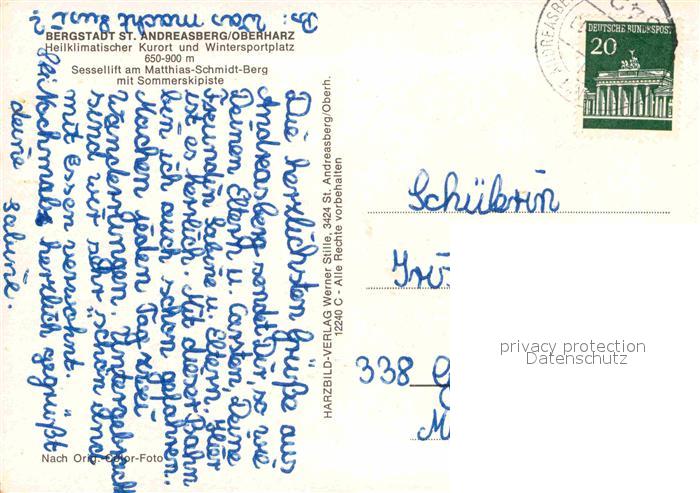 BERGSTADT ST. ANDREASBERG/OBERHARZ
Heilklimatischer Kurort und Wintersportplatz
650-900 m
Sessellift am Matthias-Schmidt-Berg
mit Sommerskipiste
Die herzlichsten Grüße aus
Andreasberg sendet Dir, so wie
Deinen Eltern u. Carsten, Deine
Freundin Sabine u. Eltern. Hier
ist es herrlich. Mit dieser Bahn
bin ich auch schon gefahren.
Machen jeden Tag zwei
Wanderungen. Untergebracht
sind wir sehr schön und
mit Essen verwöhnt.
Seid nochmals herzlich gegrüßt
deine
Sabine.
Ps: Was macht
Nach Orig.-Color-Foto
HARZBILD-VERLAG Werner Stille, 3424 St. Andreasberg/Oberh.
12240 C - Alle Rechte vorbehalten
DEUTSCHE BUNDESPOST
20
Schülerin
338
privacy protection
Datenschutz